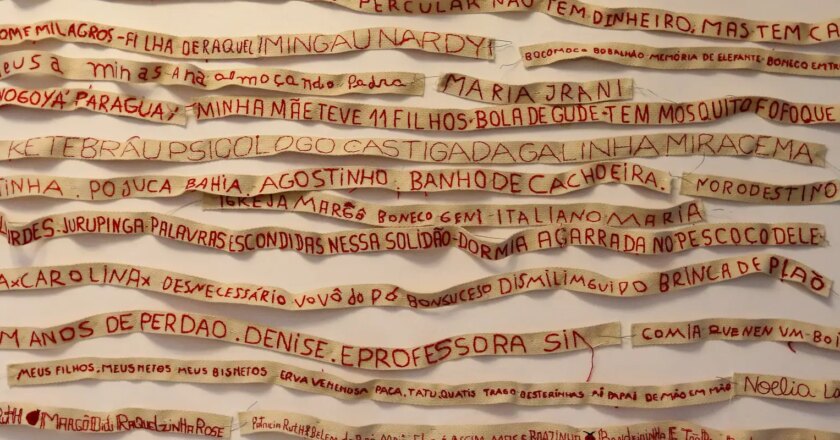 PERCULAR NÃO TEM DINHEIRO, MAS TEM CA
OME MILAGROS-FILHA DE RAQUEL MINGAU NARDY
BOCOMOCO BOBALHÃO MEMÓRIA DE ELEFANTE-BONECO EM TR
eusa minas Ana almoçando Padra
MARIA IRANI
NOGOYÁ PARAGUAY
MINHA MÃE TEVE 11 FILHOS-BOLA DE GUDE-TEM MOSQUITO FOFOQUE
KETEBRÂU PSICOLOGO CASTIGADA GALINHA MIRACEMA
TINHA. POJUCA BAHIA. AGOSTINHO. BANHO DE CACHOEIRA.
NORODESTINO
IGREJA MARGÔ BONECO GENI-ITALIANO MARIA
URDES-JURUPINGA-PALAVRAS ESCONDIDAS NESSA SOLIDÃO-DORMIA AGARRADA NO PESCOÇO DELE-
AxCAROLINAx DESNECESSÁRIO vovô do pó BONSUCESO DISMILIMGUIDO BRINCA DE PIAÕ
M ANOS DE PERDAO. DENISE. E PROFESSORA SIM
COMIA QUE NEN UM-BOI
MEUS FILHOS, MEUS NETOS MEUS BISNETOS ERVA VENENOSA PACA, TATU, QUATIS TRAGO BESTERINHAS PÉ PAPAI DE MÃO EM MÃO
NOELIA L
RUTH MARGÔ Didi RAQUELZINHA ROSE
Patricia RUTH BELEM